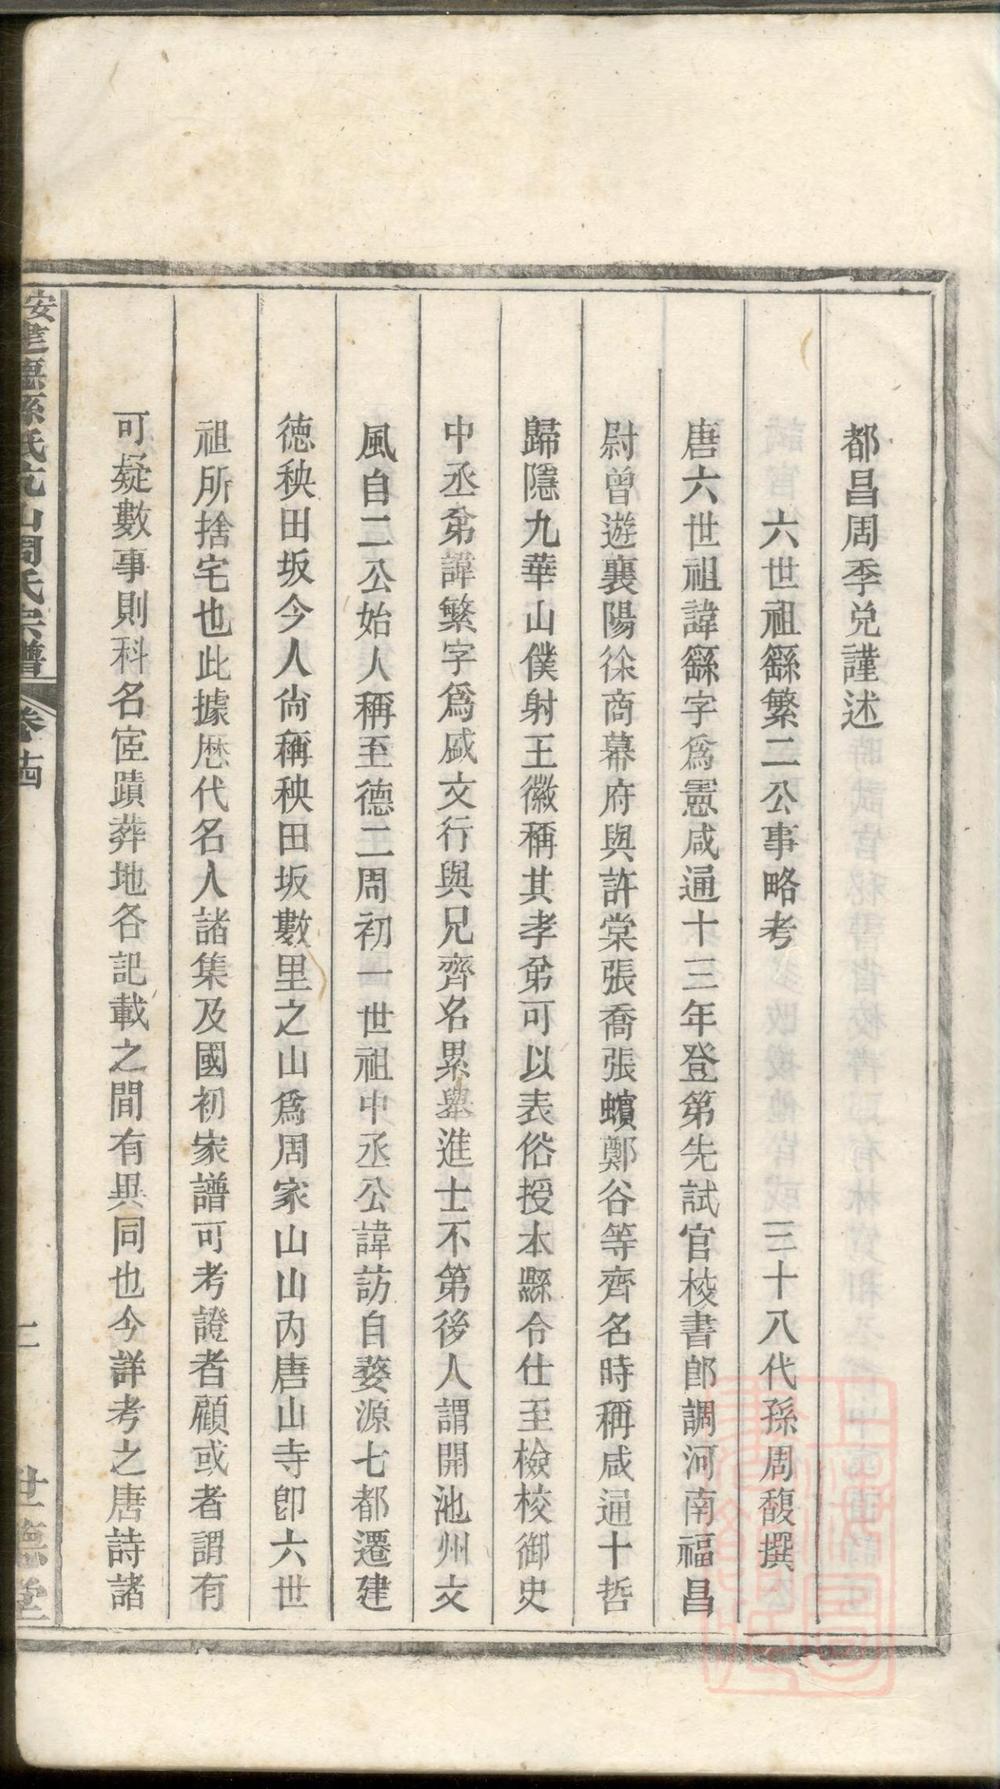 都昌周季兌謹述
六世祖繇繁二公事略考 三十八代孫周馥撰
唐六世祖諱繇字爲憲咸通十三年登第先試官校書郎調河南福昌
尉曾遊襄陽徐商幕府與許棠張喬張蠙鄭谷等齊名時稱咸通十哲
歸隱九華山僕射王徽稱其孝弟可以表俗授本縣令仕至檢校御史
中丞弟諱繁字爲咸文行與兄齊名累舉進士不第後人謂開池州文
風自二公始人稱至德二周初一世祖中丞公諱訪自婺源七都遷建
德秧田坂今人尚稱秧田坂數里之山爲周家山山內唐山寺卽六世
祖所捨宅也此據歷代名人諸集及國初家譜可考證者顧或者謂有
可疑數事則科名宦蹟葬地各記載之間有異同也今詳考之唐詩諸
安建德縣紙坑山周氏宗譜 卷十四 世德堂